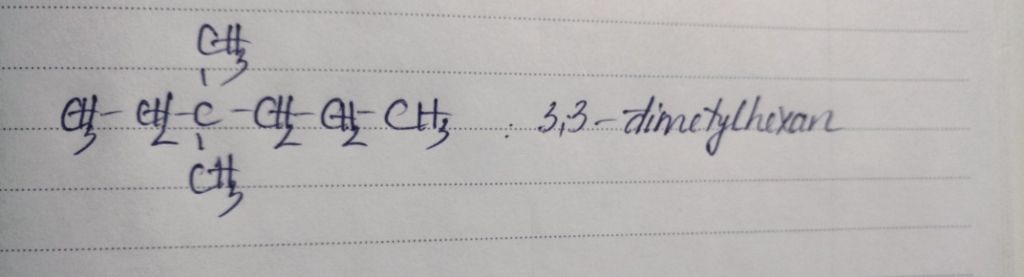 CH3
CH3 - CH2 - C - CH2 - CH2 - CH3 : 3,3-dimetylhexan
CH3